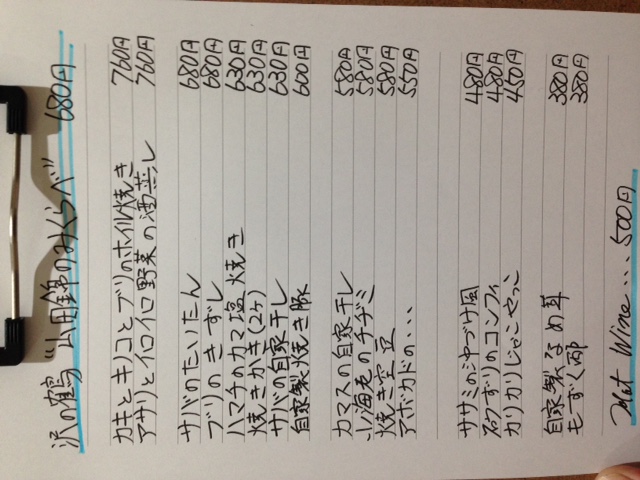 沢の鶴"山田錦のみくらべ" 680円
カキとキノコとブリのホイル焼き 760円
アサリとイロイロ野菜の酒蒸し 760円
サバのたいたん 680円
ブリのきずし 680円
ハマチのカマ塩焼き 630円
焼きかき(2ケ) 630円
サバの自家干し 630円
自家製焼き豚 600円
カマスの自家干し 580円
小海老のチヂミ 580円
焼き空豆 580円
アボカドの... 550円
ササミの梅づけ風 480円
砂ずりのコンフィ 480円
カリカリじゃこやっこ 450円
自家製なめ茸 380円
もずく酢 380円
Hot Wine... 500円